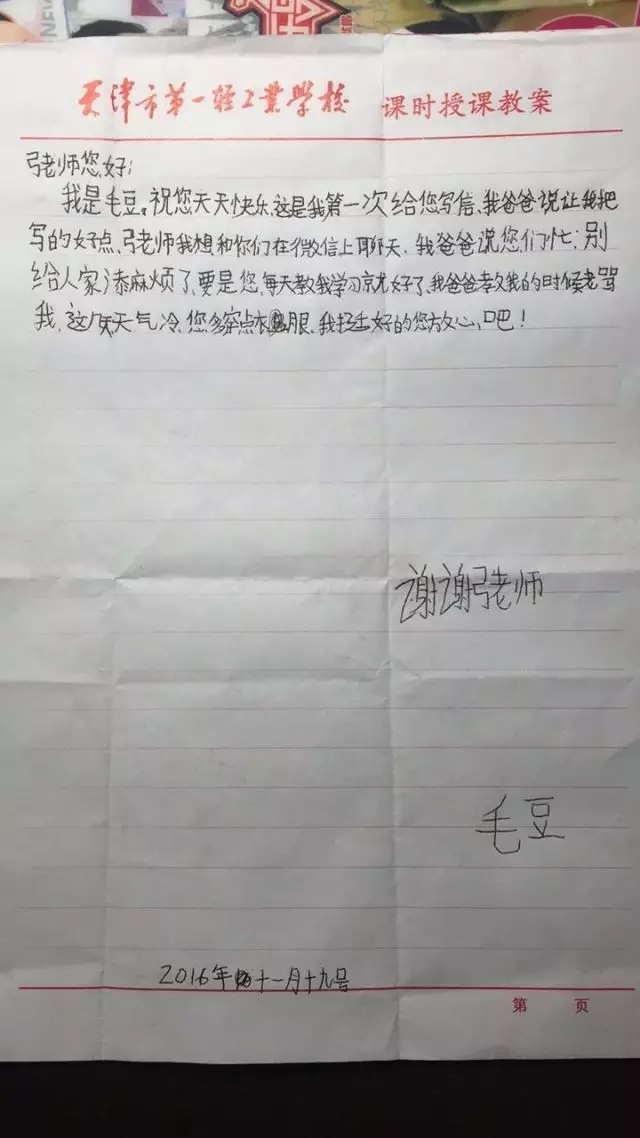 天津市第一轻工業學校 课时授课教案
弓老师您好;
我是毛豆,祝您天天快乐,这是我第一次给您写信、我爸爸说让我把
写的好点、弓老师我想和你们在微信上聊天、我爸爸说您们忙;别
给人家添麻烦了,要是您,每天教我学习京尤好了、我爸爸教我的时候老骂
我、这几天天气冷、您多穿点衣服、我挺好的您放心,吧!
谢谢弓老师
毛豆
2016年十一月十九号
第 页